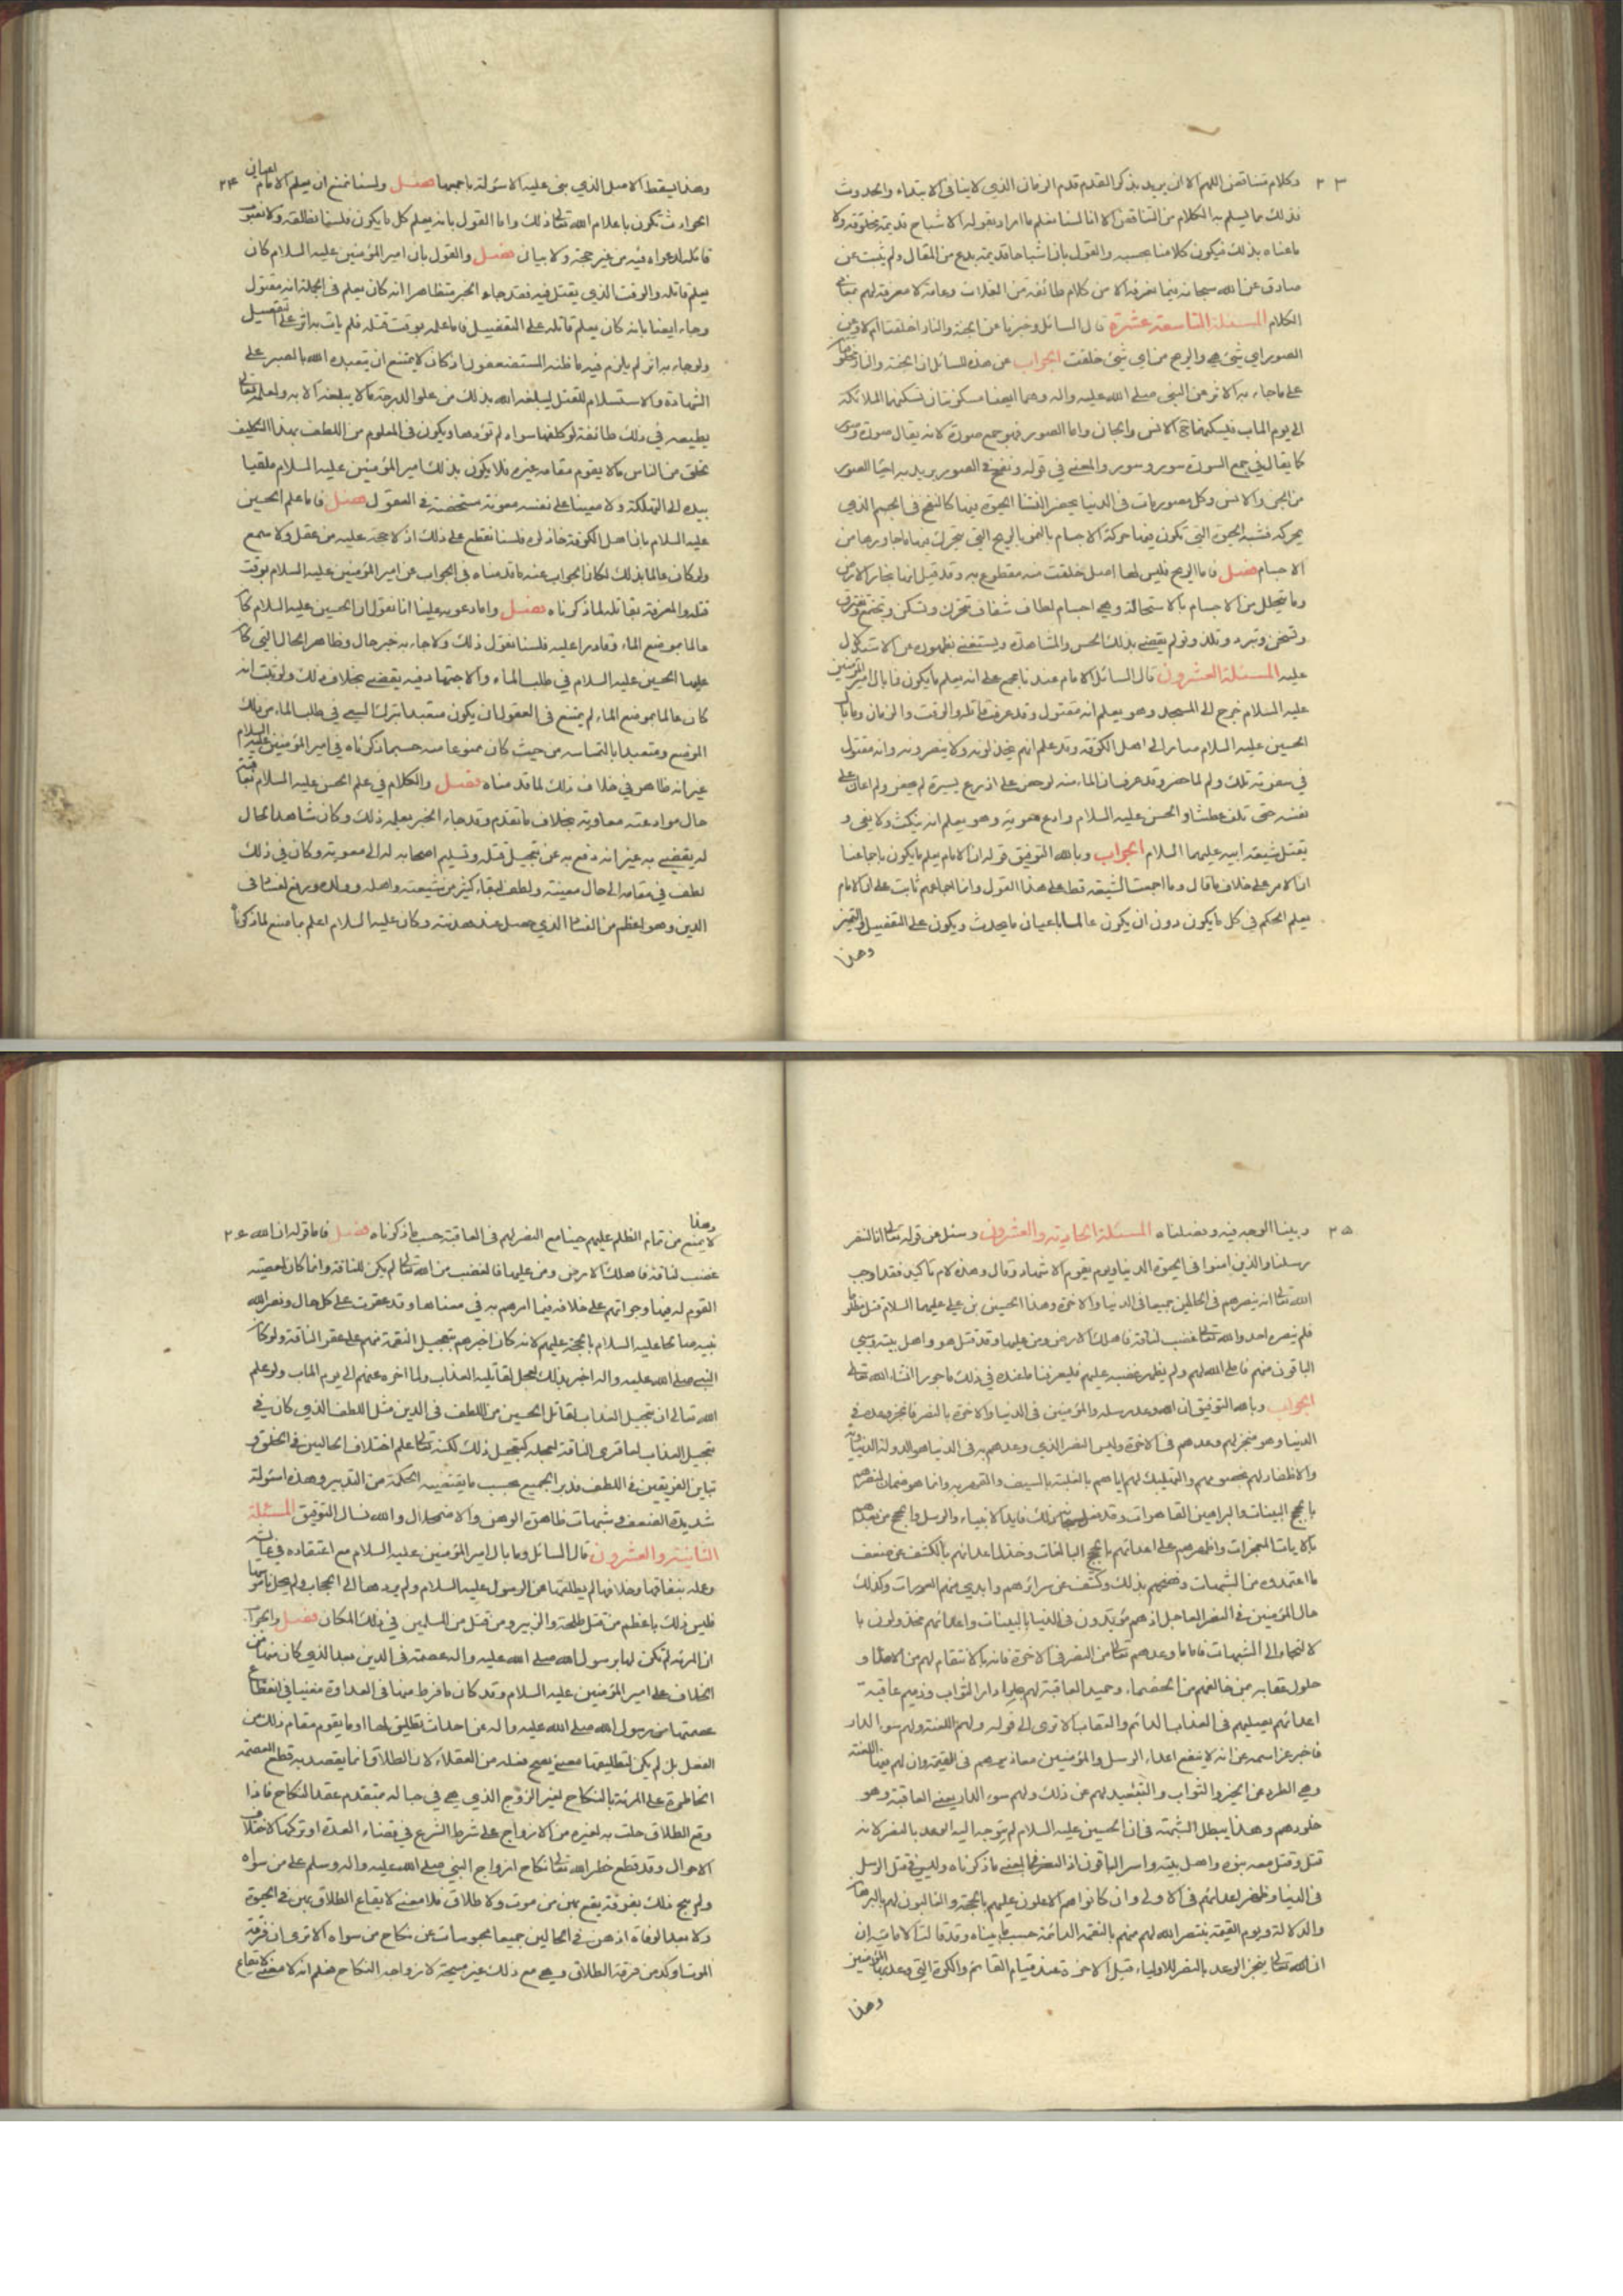 ٢٣ وكلام متناقض اللهم الا ان يريد بذكر القدم قدم الزمان الذي لا ينافى الابتداء والحدوث
فذلك مما يسلم به الكلام من التناقض الا انا لسنا نعلم ما اراد بقوله الاشباح قديمة مخلوقة ولا
ما عناه بذلك فيكون كلامنا بحسبه والقول بان اشباحا قديمة بدع من المقال ولم يثبت عن
صادق عن الله سبحانه فيما نعرفه الا من كلام طائفة من الغلات وعامة لا معرفة لهم بمعانى
الكلام المسئلة التاسعة عشرة قال السائل وخبرنا عن الجنة والنار اخلقتا ام لا وعن
الصور اي شئ هي والريح من اي شئ خلقت الجواب عن هذه المسائل ان الجنة والنار مخلوقتان
على ما جاء به الاثر عن النبي صلى الله عليه واله وهما ايضا مسكونتان تسكنهما الملائكة
الى يوم الماب فيسكنهما حينئذ الانس والجان واما الصور فهو جمع صورة لانه يقال صورة وصور
كما يقال في جمع السورة سور وسور والمعنى في قوله ونفخ في الصور يريد به احيا الصور
من الجن والانس وكل مصور مات فى الدنيا
يحركه فشبه الحيوة التي تكون فيها حركة الاجسام بالنمو بالريح التي تتحرك بها ما جاورها من
الاجسام فصل فاما الريح فليس لها اصل خلقت منه مقطوع به وقد قيل انها بخار الارض
وما يتحلل من الاجسام بالاستحالة وهي اجسام لطاف شفاف تتحرك وتسكن وتجتمع وتفترق
وتسخن وتبرد وتلذ وتولم يقضي بذلك الحس والمشاهدة ويستغنى بظهوره عن الاستدلال
عليه المسئلة العشرون قال السائل الامام عندنا مجمع على انه يعلم ما يكون فما بال امير المؤمنين
عليه السلام خرج الى المسجد وهو يعلم انه مقتول وقد عرف قاتله والوقت والزمان وما بال
الحسين عليه السلام صار الى اهل الكوفة وقد علم انهم يخذلونه ولا ينصرونه وانه مقتول
في سفرته تلك ولم لما حصر وقد عرف ان الماء منه لو حفر على اذرع يسيرة لم يحفر ولم اعان على
نفسه حتى تلف عطشا والحسن عليه السلام وادع معوية وهو يعلم انه ينكث ولا يفى و
يقتل شيعة ابيه عليهما السلام الجواب وبالله التوفيق قوله ان الامام يعلم ما يكون باجماعنا
ان الامر على خلاف ما قال وما اجمعت الشيعة قط على هذا القول وانما اجماعهم ثابت على ان الامام
يعلم الحكم في كل ما يكون دون ان يكون عالما باعيان ما يحدث ويكون على التفصيل والتميز
وهذا
وهذا يسقط الاصل الذي بنى عليه الاسئولة باجمعها فصل ولسنا نمنع ان يعلم الامام اعيان ٢٤
الحوادث تكون باعلام الله تعالى ذلك واما القول بانه يعلم كل ما يكون فلسنا نطلقه ولا نصوب
قائله لدعواه فيه من غير حجة ولا بيان فصل والقول بان امير المؤمنين عليه السلام كان
يعلم قاتله والوقت الذي يقتل فيه فقد جاء الخبر متظاهرا انه كان يعلم فى الجملة انه مقتول
وجاء ايضا بانه كان يعلم قاتله على التفصيل فاما علمه بوقت قتله فلم يات به اثر على التفصيل
ولو جاء به اثر لم يلزم فيه ما ظنه المستضعفون اذ كان لا يمتنع ان يتعبده الله بالصبر على
الشهادة والاستسلام للقتل ليبلغه الله بذلك من علو الدرجة ما لا يبلغه الا به ولعلمه تعالى
يطيعه في ذلك طاعة لو كلفها سواه لم يؤدها ويكون فى المعلوم من اللطف بهذا التكليف
لخلق من الناس ما لا يقوم مقامه غيره فلا يكون بذلك امير المؤمنين عليه السلام ملقيا
بيده الى التهلكة ولا معينا على نفسه معونة مستحنفة فى العقول فصل فاما علم الحسين
عليه السلام بان اهل الكوفة خاذلوه فلسنا نقطع على ذلك اذ لا حجة عليه من عقل ولا سمع
ولو كان عالما بذلك لكان الجواب عنه ما قدمناه فى الجواب عن امير المؤمنين عليه السلام بوقت
قتله والمعرفة بقاتله لما ذكرناه فصل واما دعويه علينا انا نقول ان الحسين عليه السلام كان
عالما بموضع الماء وقادرا عليه فلسنا نقول ذلك ولا جاء به خبر بحال وظاهر الحال التي كان
عليها الحسين عليه السلام في طلب الماء والاجتهاد فيه يقضي بخلاف ذلك ولو ثبت انه
كان عالما بموضع الماء لم يمتنع فى العقول ان يكون متعبدا بترك السعي في طلب الماء من ذلك
الموضع ومتعبدا بالتماسه من حيث كان ممنوعا منه حسبما ذكرناه في امير المؤمنين عليه السلام
غير انه ظاهر في خلاف ذلك لما قدمناه فصل والكلام في علم الحسن عليه السلام بعاقبة
حال موادعته معاوية بخلاف ما تقدم وقد جاء الخبر بعلمه ذلك وكان شاهد الحال
له يقضي به غير انه دفع به عن تعجيل قتله وتسليم اصحابه له الى معوية وكان في ذلك
لطف في مقامه الى حال معينة ولطف لبقاء كثير من شيعته واهله وولده ورفع لفساد فى
الدين وهو اعظم من الفساد الذي حصل عند هدنته وكان عليه السلام اعلم بما صنع لما ذكرناه
٢٥ وبينا الوجه فيه وفصلناه المسئلة الحادية والعشرون وسئل عن قوله تعالى انا لننصر
رسلنا والذين امنوا فى الحيوة الدنيا ويوم يقوم الاشهاد وقال وهذه لام تاكيد فقد اوجب
الله تعالى انه ينصرهم فى الحالين جميعا فى الدنيا والاخرة وهذا الحسين بن علي عليهما السلام قتل مظلوما
فلم ينصره احد والله تعالى غضب لناقة فاهلك الارض ومن عليها وقد قتل هو واهل بيته وسبي
الباقون منهم فاملى الله لهم ولم يظهر غضبه عليهم فليعرفنا ما عنده في ذلك ماجورا انشاء الله تعالى
الجواب وبالله التوفيق ان الله وعد رسله والمؤمنين فى الدنيا والاخرة بالنصر فانجز وعده في
الدنيا وهو منجز لهم وعدهم فى الاخرة وليس النصر الذي وعدهم به فى الدنيا هو الدولة الدنياوية
والاظفار لهم بخصومهم والتمليك لهم اياهم بالغلبة بالسيف والقهر به وانما هو ضمان لنصرهم
بالحجج البينات والبراهين القاهرات وقد فعل سبحانه ذلك فايد الانبياء والرسل والحجج من بعدهم
بالايات المعجزات واظهرهم على اعدائهم بالحجج البالغات وخذل اعدائهم بالكشف عن ضعف
ما اعتمدوه من الشبهات وفضحهم بذلك وكشف عن سرائرهم وابدي منهم العورات وكذلك
حال المؤمنين في النصر العاجل اذ هم مؤيدون فى الدنيا بالبينات واعدائهم مخذولون با
لالتجاء الى الشبهات فاما ما وعدهم تعالى من النصر فى الاخرة فانه بالانتقام لهم من الاعداء و
حلول عقابه بمن خالفهم من الخصماء وحميد العاقبة لهم بحلول دار الثواب وذميم عاقبة
اعدائهم بصليهم فى العذاب الدائم والعقاب الا ترى الى قوله ولهم اللعنة ولهم سوء الدار
فاخبر عز اسمه عن انه لا ينفع اعداء الرسل والمؤمنين معاذيرهم فى القيمة وان لهم فيها اللعنة
وهي الطرد عن الخير والثواب والتبعيد لهم عن ذلك ولهم سوء الدار يعني العاقبة وهو
خلودهم وهذا يبطل الشبهة فى ان الحسين عليه السلام لم يتوجه اليه الوعد بالنصر لانه
قتل وقتل معه بنوه واهل بيته واسر الباقون اذ النصر ما ذكرناه وليس في قتل الرسل
فى الدنيا وظفر اعدائهم فى الاولى وان كانوا هم الاعلون عليهم بالحجة والغالبون لهم بالبرهان
والدلالة ويوم القيمة ينتصر الله لهم منهم بالنقمة الدائمة حسب ما بيناه وقد قالت الامامية ان
ان الله تعالى ينجز الوعد بالنصر للاولياء قبل الاخرة عند قيام القائم والكرة التي وعد بها المؤمنين
وهذا
وهذا
لا يمنع من تمام الظلم عليهم حينا مع النصر لهم فى العاقبة حسب ما ذكرناه فصل فاما قوله ان الله ٢٦
غضب لناقة فاهلك الارض ومن عليها فالغضب من الله تعالى لم يكن للناقة وانما كان لمعصية
القوم له فيها وجراتهم على خلافه فيما امرهم به في معناها وقد عقرت على كل حال ونصر الله
نبيه صالحا عليه السلام بالحجة عليهم لانه كان اخبرهم بتعجيل النقمة منهم على عقر الناقة ولو كان
النبي صلى الله عليه واله اخبر بذلك لعجل لقاتليه العذاب ولما اخره عنهم الى يوم الماب ولو علم
الله تعالى ان تعجيل العذاب لقاتل الحسين من اللطف فى الدين مثل اللطف الذي كان في
تعجيل العذاب لعاقري الناقة لعجله كتعجيل ذلك لكنه تعالى علم اختلاف الحالين في الخلق و
تباين الفريقين في اللطف فدبر الجميع بحسب ما يقتضيه الحكمة من التدبير وهذه اسئولة
شديدة الضعف وشبهات ظاهرة الوهن والاضمحلال والله نسال التوفيق المسئلة
الثانية والعشرون قال السائل وما بال امير المؤمنين عليه السلام مع اعتقاده في عائشة
وعلمه بنفاقها وخلافها لم يطلقها عن الرسول عليه السلام ولم يردها الى الحجاب ولم يحل ناموسها
فليس ذلك باعظم من قتل طلحة والزبير ومن قتل من المسلمين في ذلك المكان فصل والجواب
ان المرئة لم تكن لها برسول الله صلى الله عليه واله عصمة فى الدين بعد الذي كان منها من
الخلاف على امير المؤمنين عليه السلام وقد كان ما فرط منها فى العداوة مغنيا في انقطاع
عصمتها من رسول الله صلى الله عليه واله عن احداث تطليق لها او ما يقوم مقام ذلك من
الفعل بل لم يكن لتطليقها معنى يصح فعله من العقلاء لان الطلاق انما يقصد به قطع العصمة
الحاظرة على المرئة بالنكاح لغير الزوج الذي هي في حباله بمتقدم عقد النكاح فاذا
وقع الطلاق حلت به لغيره من الازواج على شرط الشرع في قضاء العدة او تركها لاختلاف
الاحوال وقد قطع حظر الله تعالى نكاح ازواج النبي صلى الله عليه واله وسلم على من سواه
ولم يبح ذلك بفرقة يقع بهن من موت ولا طلاق فلا معنى لايقاع الطلاق بهن في الحيوة
ولا بعد الوفاة اذ هن في الحالين جميعا محبوسات عن نكاح من سواه الا ترى ان فرقة
الموت اوكد من فرقة الطلاق وهي مع ذلك غير مبيحة لازواجه النكاح فعلم انه لا معنى لايقاع